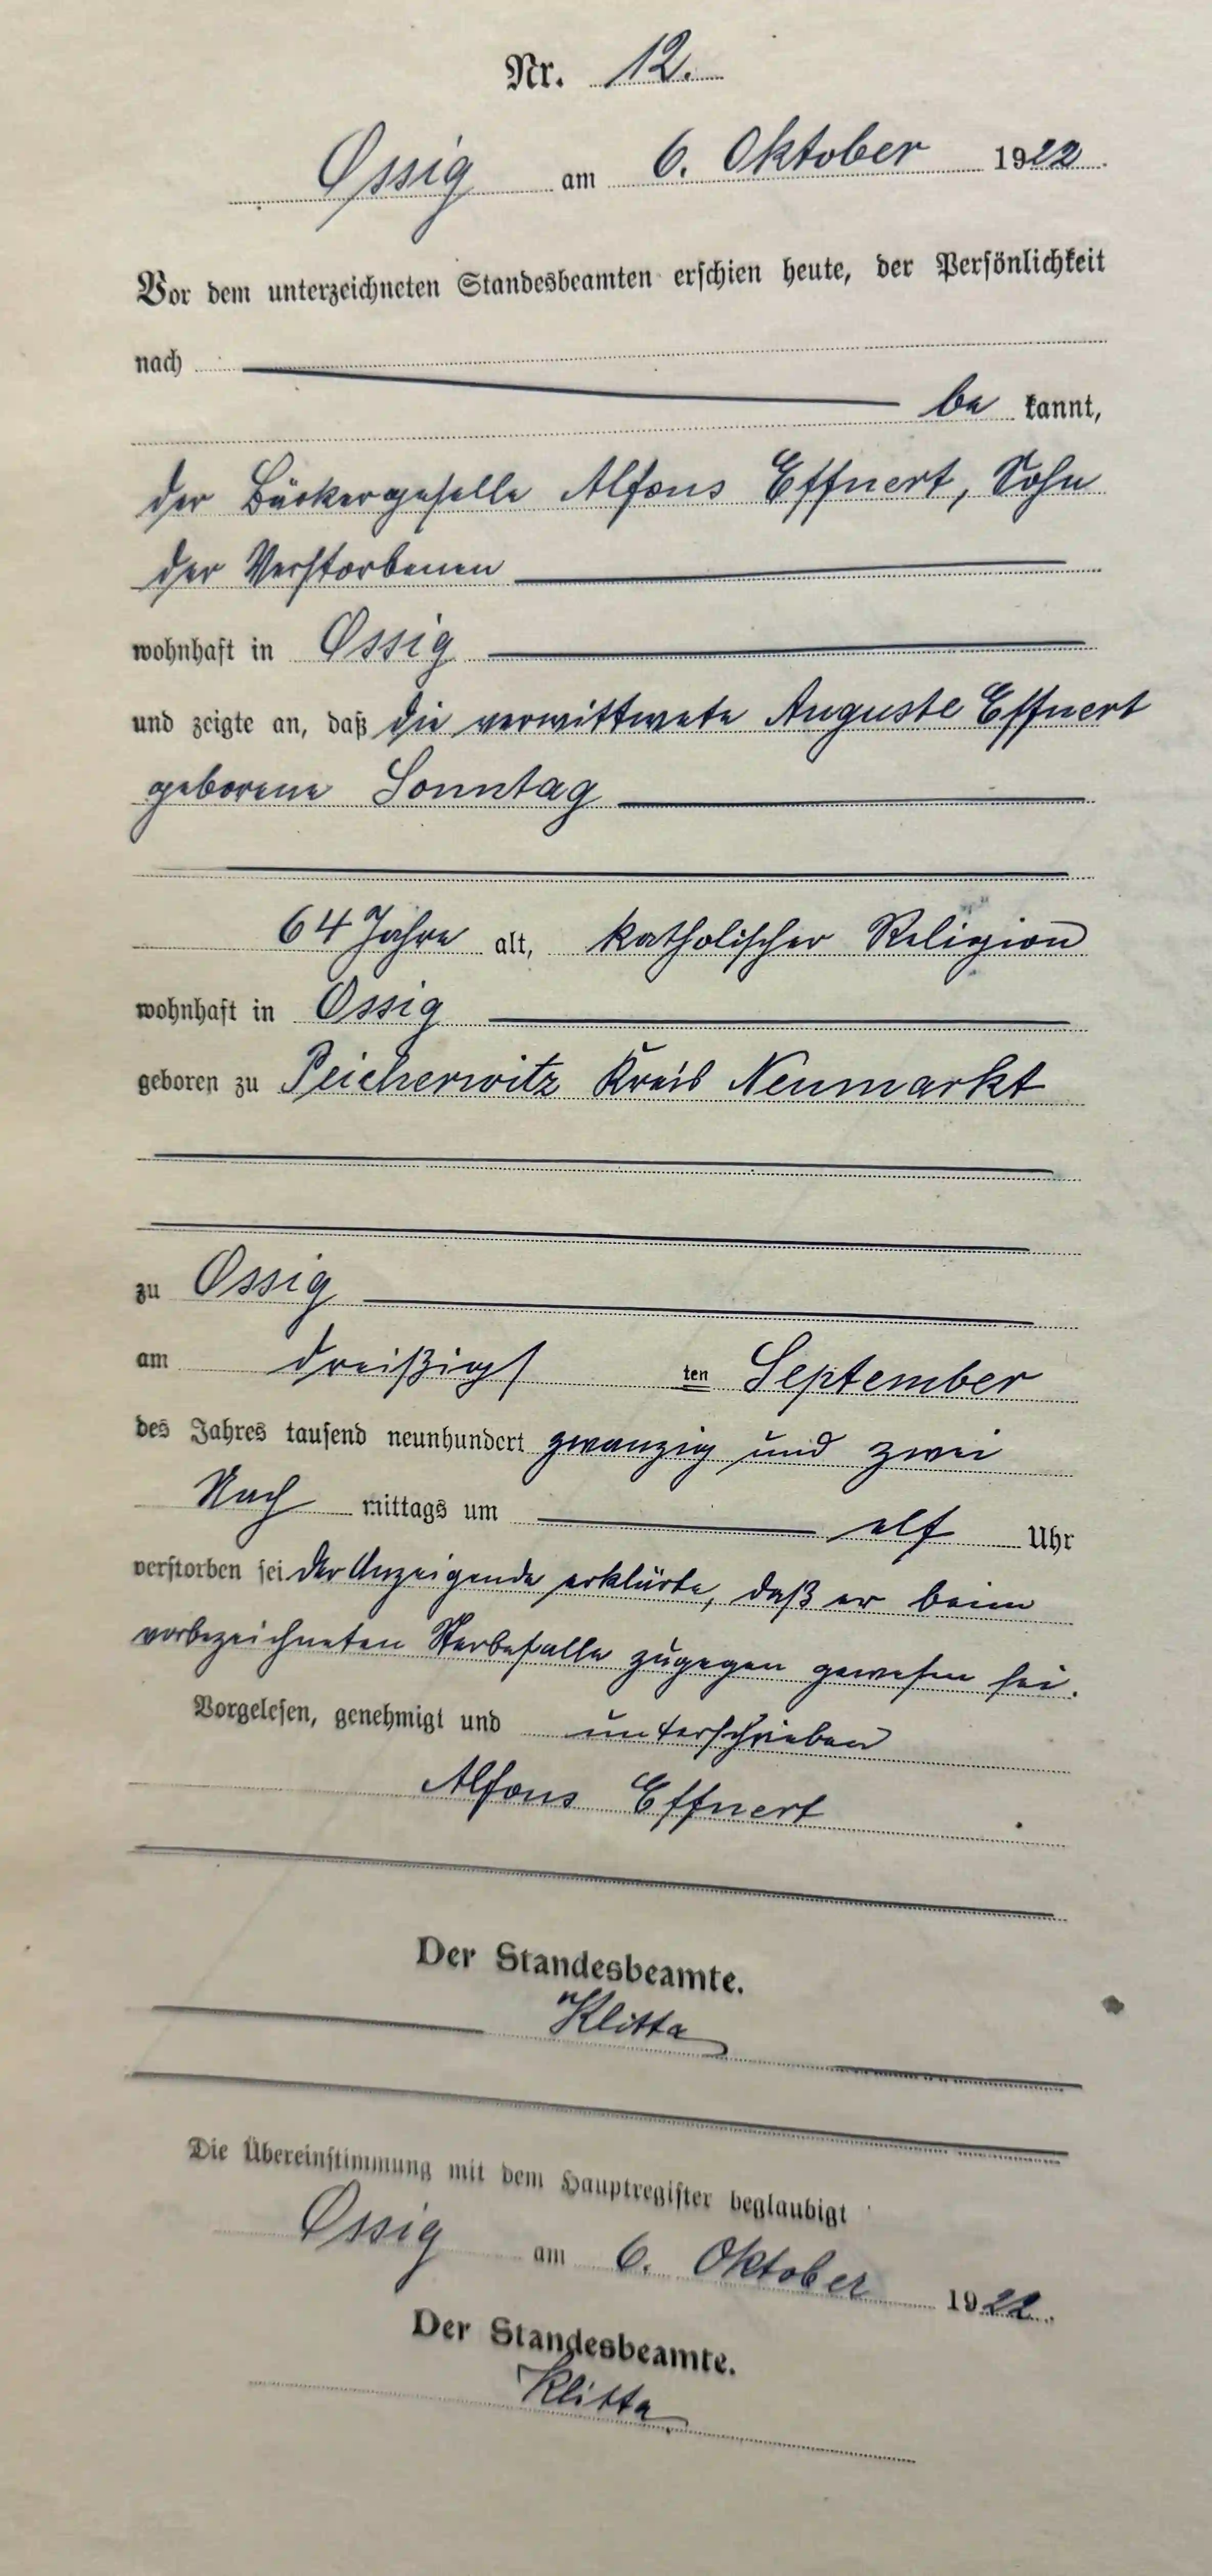 Nr. 12.
Ossig am 6. Oktober 1922.
Vor dem unterzeichneten Standesbeamten erschien heute, der Persönlichkeit
nach
be kannt,
der Bäckergeselle Alfons Effnert, Sohn
der Verstorbenen
wohnhaft in Ossig
und zeigte an, daß die verwittwete Auguste Effnert
geborene Sonntag
64 Jahre alt, katholischer Religion
wohnhaft in Ossig
geboren zu Peicherwitz Kreis Neumarkt
zu Ossig
am dreißigsten September
des Jahres tausend neunhundert zwanzig und zwei
Nach mittags um elf Uhr
verstorben sei der Anzeigende erklärte, daß er beim
vorbezeichneten Sterbefalle zugegen gewesen sei.
Vorgelesen, genehmigt und unterschrieben
Alfons Effnert
Der Standesbeamte.
Klitta
Die Übereinstimmung mit dem Hauptregister beglaubigt
Ossig am 6. Oktober 1922.
Der Standesbeamte.
Klitta